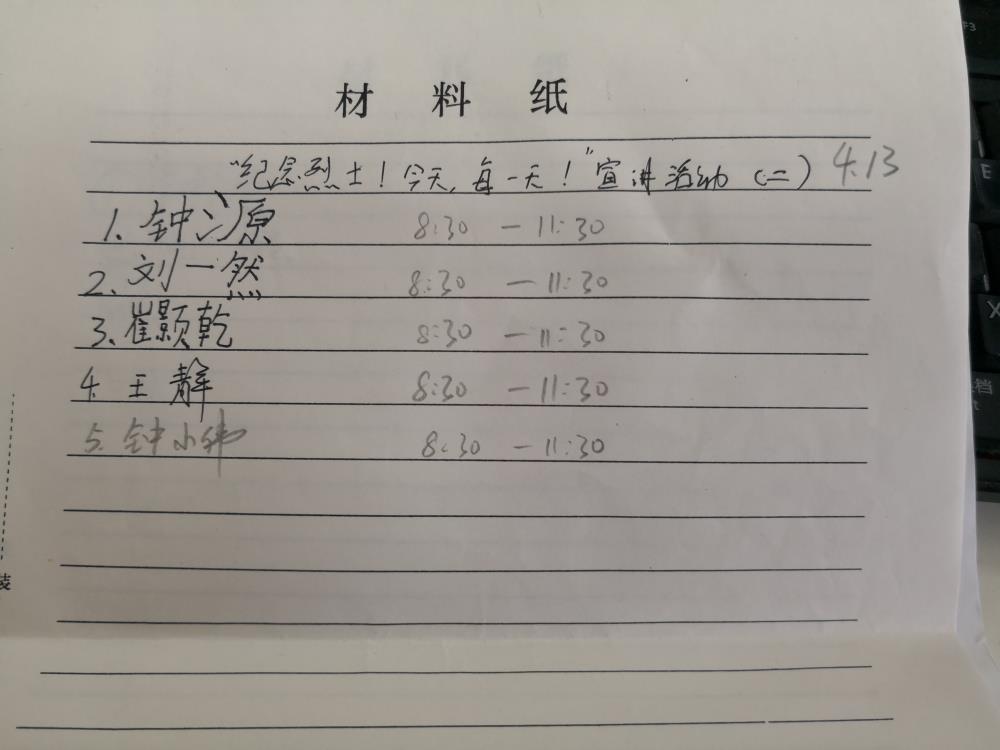 材 料 纸
"纪念烈士！今天，每一天！"宣讲活动（二） 4.13
1. 钟源 8:30 — 11:30
2. 刘一然 8:30 — 11:30
3. 崔颢乾 8:30 — 11:30
4. 王静 8:30 — 11:30
5. 钟小 8:30 — 11:30
装